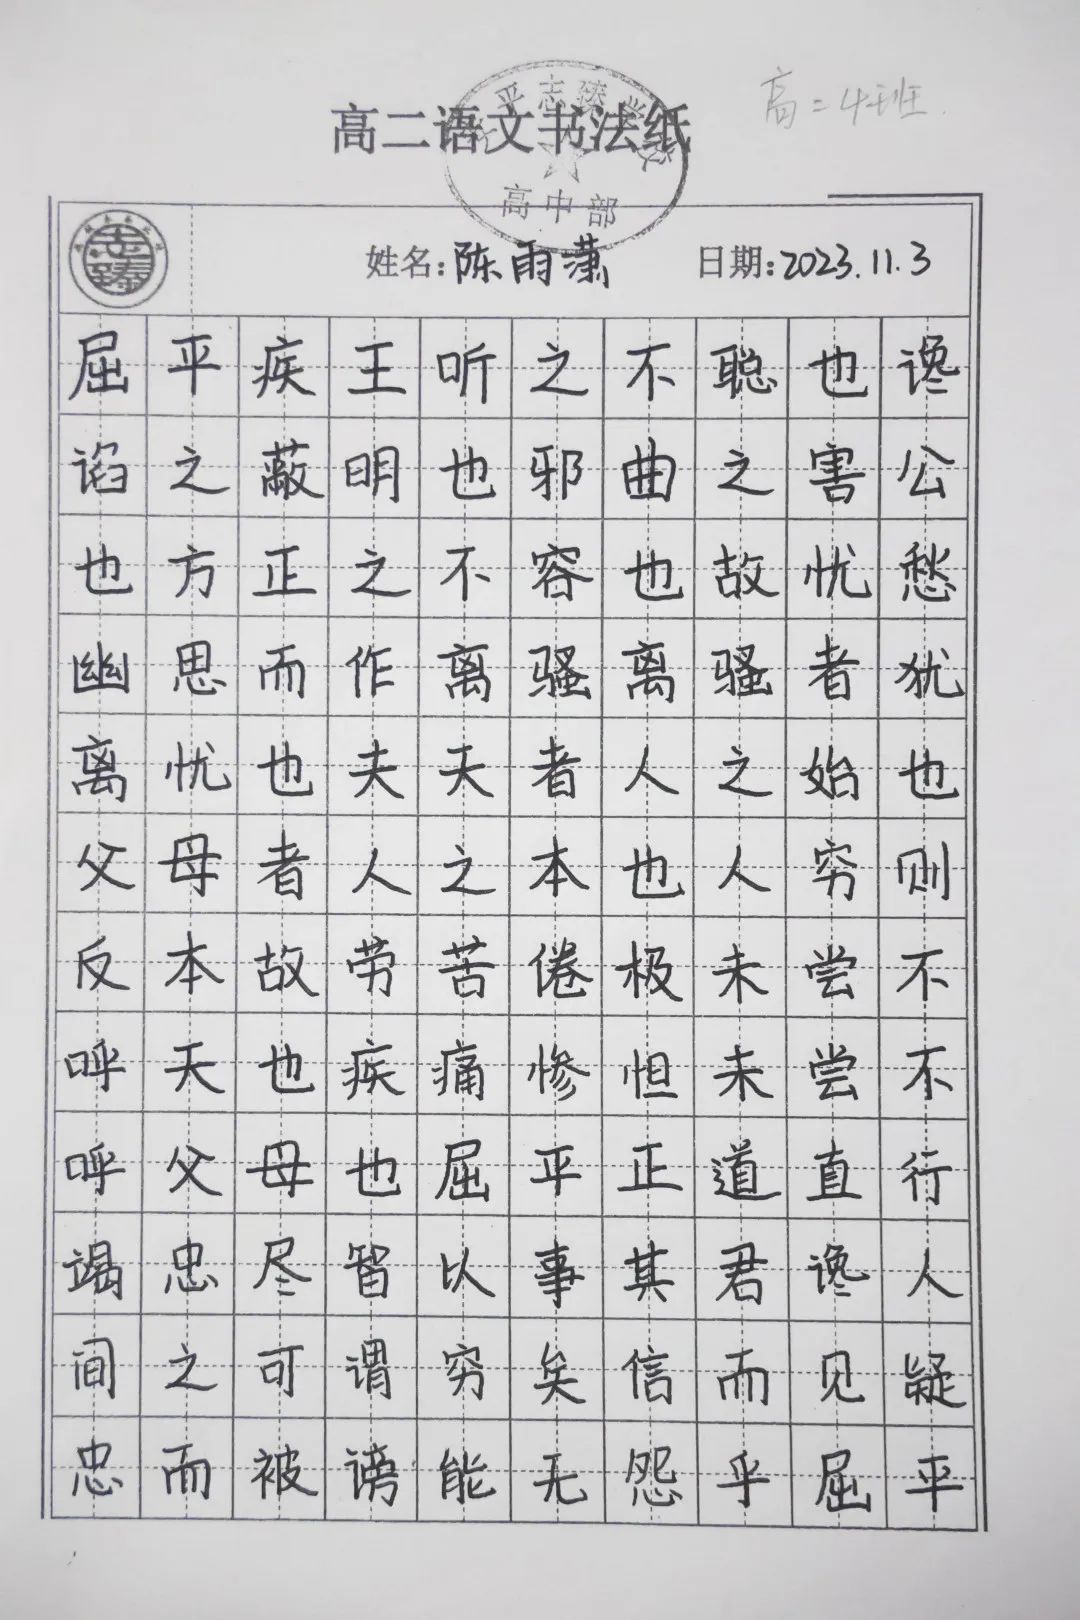 高二语文书法纸
高二4班
高中部
姓名:陈雨潇 日期:2023.11.3
屈平疾王听之不聪也谗
谄之蔽明也邪曲之害公
也方正之不容也故忧愁
幽思而作离骚离骚者犹
离忧也夫天者人之始也
父母者人之本也人穷则
反本故劳苦倦极未尝不
呼天也疾痛惨怛未尝不
呼父母也屈平正道直行
竭忠尽智以事其君谗人
间之可谓穷矣信而见疑
忠而被谤能无怨乎屈平